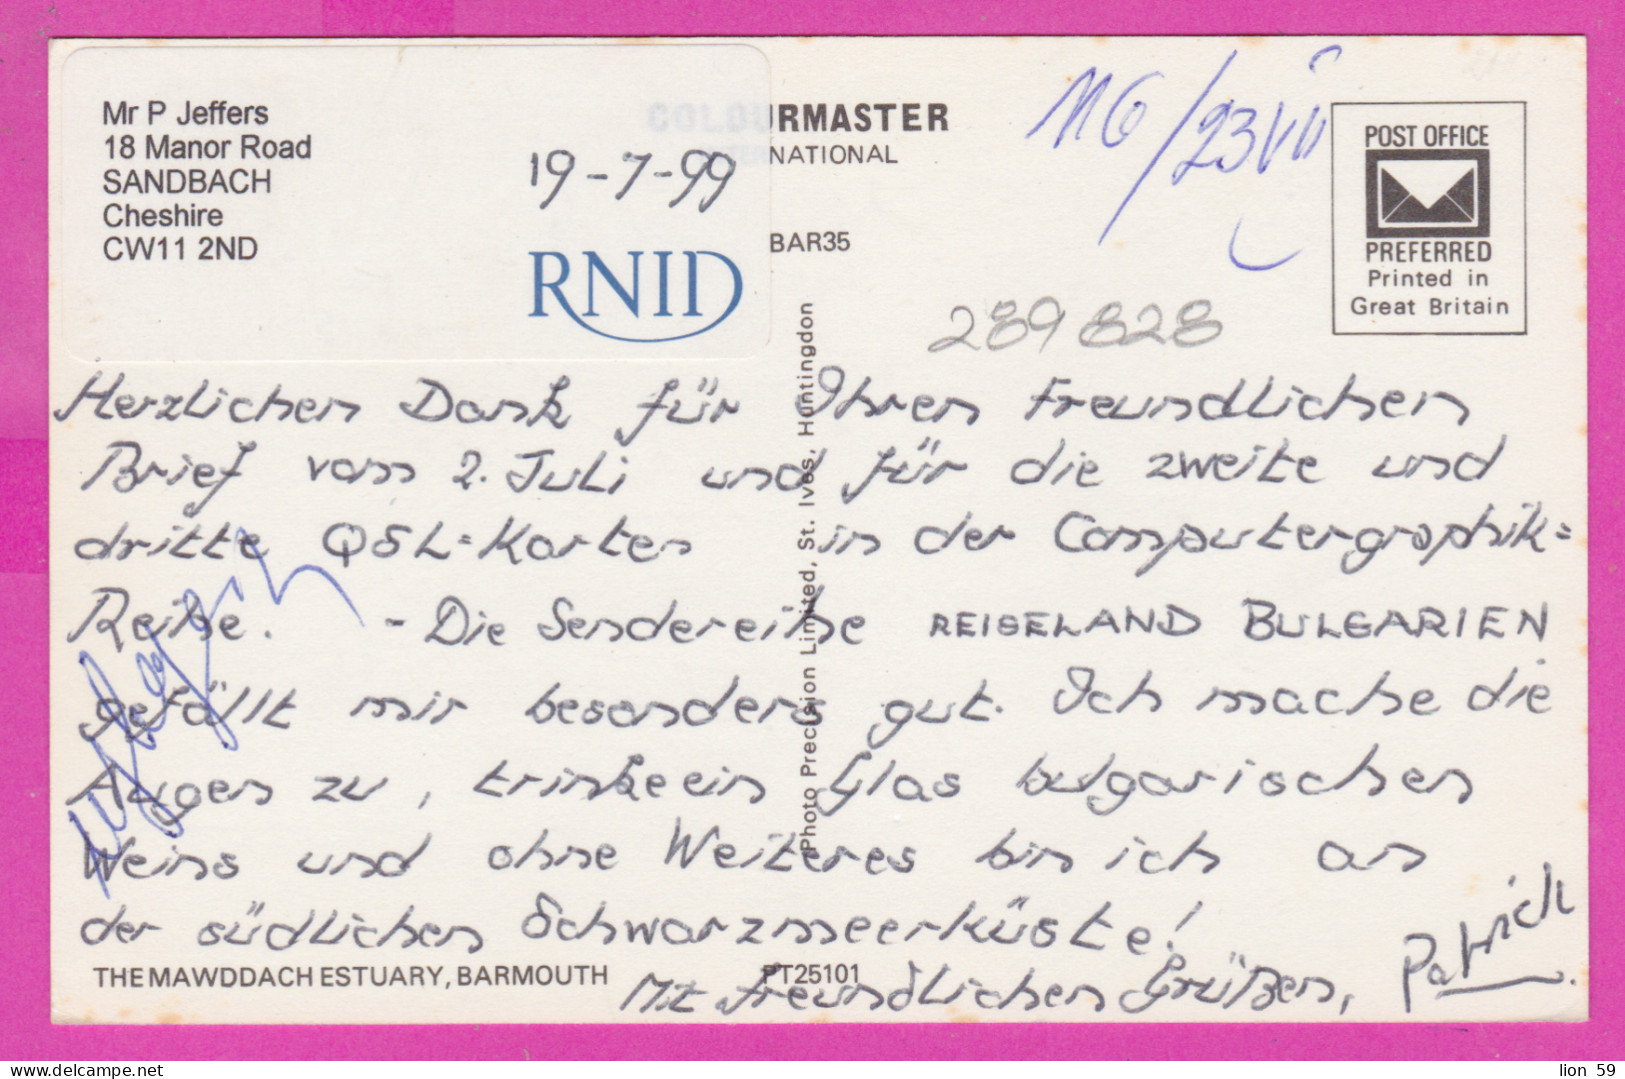 Mr P Jeffers
18 Manor Road
SANDBACH
Cheshire
CW11 2ND
19-7-99
RNID
COLOURMASTER
INTERNATIONAL
BAR35
116/23 VII
POST OFFICE
PREFERRED
Printed in
Great Britain
289828
Herzlichen Dank für Ihren Freundlichen
Brief vom 2. Juli und für die zweite und
dritte QSL-Karten in der Computergraphik=
Reihe. - Die Sendereihe REISELAND BULGARIEN
gefällt mir besonders gut. Ich mache die
Augen zu, trinke ein Glas bulgarischen
Weins und ohne Weiteres bin ich an
der südlichen Schwarzmeerküste!
Mit freundlichen Grüßen, Patrick
THE MAWDDACH ESTUARY, BARMOUTH
PT25101
Photo Precision Limited, St. Ives, Huntingdon
lion 59